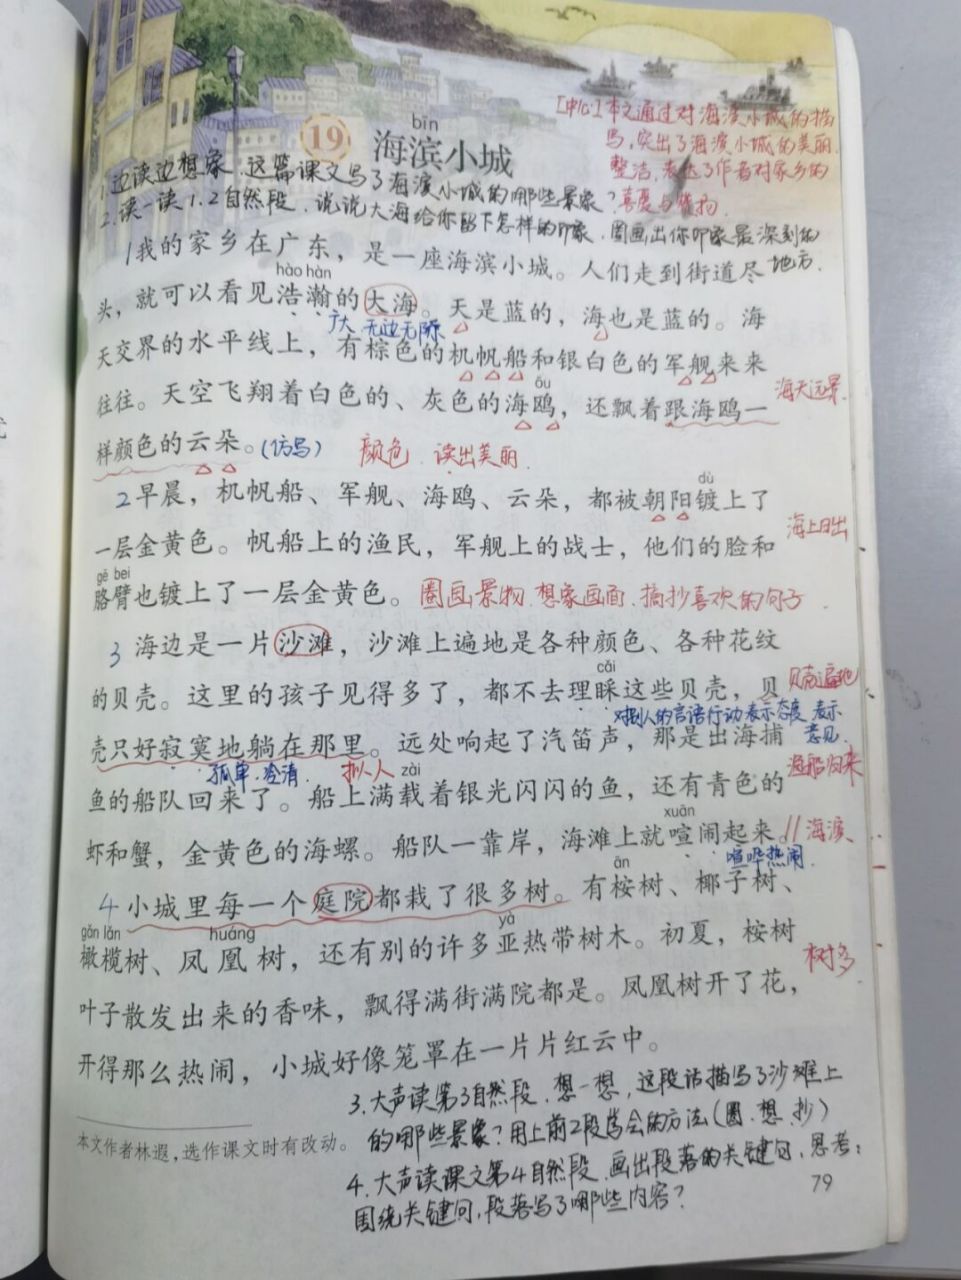 [中心]本文通过对海滨小城的描
写,突出了海滨小城的美丽、
整洁,表达了作者对家乡的
喜爱与赞扬.
bīn
19 海滨小城
1.边读边想象,这篇课文写了海滨小城的哪些景象?
2.读一读1.2自然段,说说大海给你留下怎样的印象,圈画出你印象最深刻的
地方.
1我的家乡在广东，是一座海滨小城。人们走到街道尽
hào hàn
头，就可以看见浩瀚的大海。天是蓝的，海也是蓝的。海
广大 无边无际
天交界的水平线上，有棕色的机帆船和银白色的军舰来来
ōu
往往。天空飞翔着白色的、灰色的海鸥，还飘着跟海鸥一
海天远景
样颜色的云朵。(仿写) 颜色.读出美丽.
dù
2早晨，机帆船、军舰、海鸥、云朵，都被朝阳镀上了
海上日出
一层金黄色。帆船上的渔民，军舰上的战士，他们的脸和
gē bei
胳臂也镀上了一层金黄色。圈画景物.想象画面.摘抄喜欢的句子.
3海边是一片沙滩，沙滩上遍地是各种颜色、各种花纹
cǎi
的贝壳。这里的孩子见得多了，都不去理睬这些贝壳，贝
贝壳遍地
对别人的言语行动表示态度,表示
意见.
壳只好寂寞地躺在那里。远处响起了汽笛声，那是出海捕
孤单.冷清. 拟人
zài
渔船归来
鱼的船队回来了。船上满载着银光闪闪的鱼，还有青色的
xuān
虾和蟹，金黄色的海螺。船队一靠岸，海滩上就喧闹起来。//海滨
喧哗热闹.
ān
4小城里每一个庭院都栽了很多树。有桉树、椰子树、
gǎn lǎn huáng yà
橄榄树、凤凰树，还有别的许多亚热带树木。初夏，桉树
树多
叶子散发出来的香味，飘得满街满院都是。凤凰树开了花，
开得那么热闹，小城好像笼罩在一片片红云中。
3.大声读第3自然段,想一想,这段话描写了沙滩上
的哪些景象?用上前2段学会的方法(圈.想.抄)
本文作者林遐，选作课文时有改动。
4.大声读课文第4自然段.画出段落的关键句,思考:
围绕关键句,段落写了哪些内容?
79